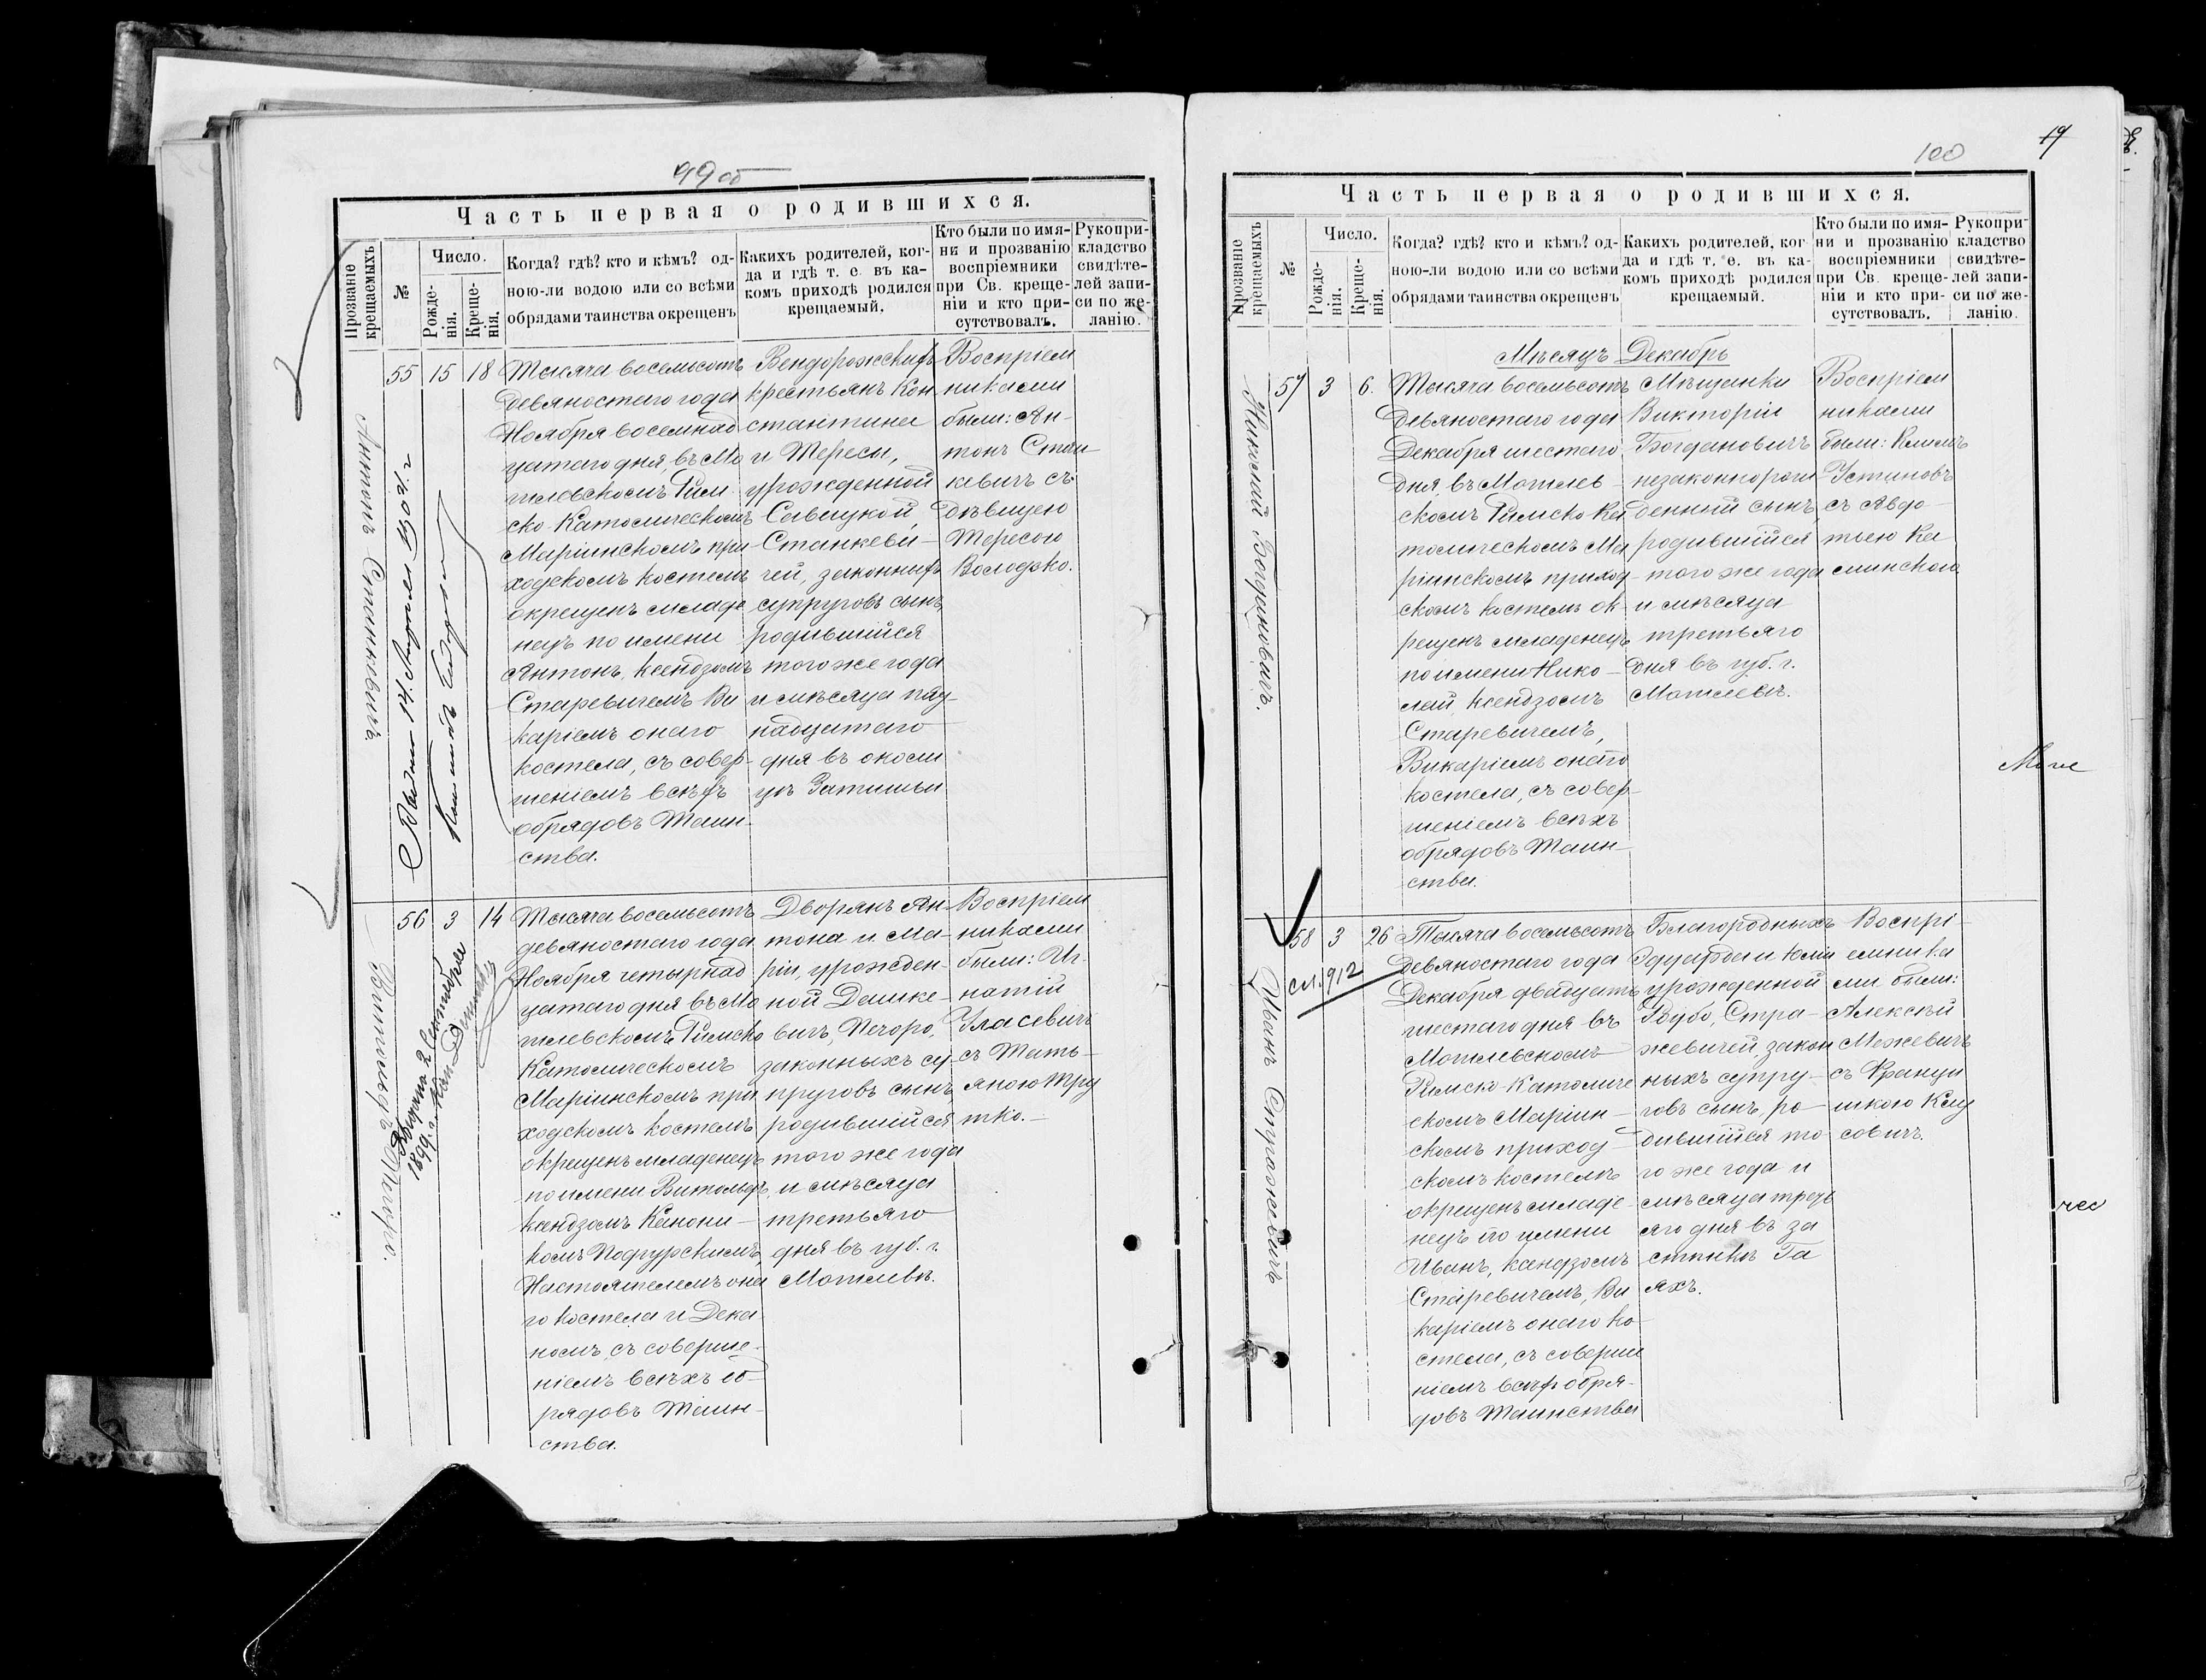 99 об
Часть первая о родившихся.
Прозваніе крещаемыхъ
№
Число.
Рожде-
нія.
Креще-
нія.
Когда? гдѣ? кто и кѣмъ? од-
ною-ли водою или со всѣми
обрядами таинства окрещенъ
Какихъ родителей, ког-
да и гдѣ т. е. въ ка-
комъ приходѣ родился
крещаемый.
Кто были по имя-
ни и прозванію
воспріемники
при Св. креще-
ніи и кто при-
сутствовалъ.
Рукопри-
кладство
свидѣте-
лей запи-
си по же-
ланію.
Антонъ Станкевичъ
55 15 18
Тысяча восемьсотъ
девяностаго года
Ноября восемнад
цатаго дня, въ Мо
гилевскомъ Рим
ско-Католическомъ
Маріинскомъ при-
ходскомъ костелѣ
окрещенъ младе
нецъ по имени
Антонъ, ксендзомъ
Старевичемъ Ви
каріемъ онаго
костела, съ совер-
шеніемъ всѣхъ
обрядовъ Таин-
ства.
Вендорожскихъ
крестьянъ Кон
стантина
и Тересы,
урожденной
Савицкой,
Станкеви-
чей, законныхъ
супруговъ сынъ,
родившійся
того же года
и мѣсяца пят-
надцатаго
дня въ околи
цѣ Затишьи
Воспріем
никами
были: Ан-
тонъ Стан
кевичъ съ
дѣвицею
Тересою
Володзко.
Витольдъ Печуро.
56 3 14
Выдана 2 Сентября
1899 г.
Тысяча восемьсотъ
девяностаго года
Ноября четырнад
цатаго дня въ Мо
гилевскомъ Римско
Католическомъ
Маріинскомъ при
ходскомъ костелѣ
окрещенъ младенецъ
по имени Витольдъ,
ксендзомъ Канони-
комъ Подгурскимъ,
Настоятелемъ она
го костела и Дека
номъ, съ соверше-
ніемъ всѣхъ об-
рядовъ Таин-
ства.
Дворянъ Ан-
тона и Ма-
ріи, урожден-
ной Дашке-
вичъ, Печоро,
законныхъ су-
пруговъ сынъ,
родившійся
того же года
и мѣсяца
третьяго
дня въ губ. г.
Могилевѣ.
Воспріем
никами
были: Иг-
натій
Уласевичъ
съ Тать-
яною Тру
тко.-
100
19
Часть первая о родившихся.
Прозваніе крещаемыхъ
№
Число.
Рожде-
нія.
Креще-
нія.
Когда? гдѣ? кто и кѣмъ? од-
ною-ли водою или со всѣми
обрядами таинства окрещенъ
Какихъ родителей, ког-
да и гдѣ т. е. въ ка-
комъ приходѣ родился
крещаемый.
Кто были по имя-
ни и прозванію
воспріемники
при Св. креще-
ніи и кто при-
сутствовалъ.
Рукопри-
кладство
свидѣте-
лей запи-
си по же-
ланію.
Мѣсяцъ Декабрь
Николай Богдановичъ.
57 3 6.
Тысяча восемьсотъ
девяностаго года
Декабря шестаго
дня, въ Могилев-
скомъ Римско-Ка
толическомъ Ма
ріинскомъ приход-
скомъ костелѣ ок-
рещенъ младенецъ
по имени Нико-
лай, ксендзомъ
Старевичемъ,
Викаріемъ онаго
костела, съ совер-
шеніемъ всѣхъ
обрядовъ Таин-
ства.
Мѣщанки
Викторіи
Богдановичъ
незаконнорож
денный сынъ,
родившійся
того же года
и мѣсяца
третьяго
дня въ губ. г.
Могилевѣ.
Воспріем
никами
были: Климъ
Устиновъ
съ Авдо-
тьею Ка
минскою.
Иванъ Стражевичъ
58 3 26
см. 912
Тысяча восемьсотъ
девяностаго года
Декабря двадцать
шестаго дня въ
Могилевскомъ
Римско-Католиче
скомъ Маріин-
скомъ приход-
скомъ костелѣ
окрещенъ младе-
нецъ по имени
Иванъ, ксендзомъ
Старевичемъ, Ви
каріемъ онаго ко-
стела, съ соверше
ніемъ всѣхъ обря-
довъ Таинства
Благородныхъ
Эдуарда и Юліи
урожденной
Вубо, Стра-
жевичей, закон
ныхъ супру-
говъ сынъ, ро-
дившійся то
го же года и
мѣсяца треть
яго дня въ за
стѣнкѣ Га
яхъ.
Воспрі-
емника
ми были:
Алексѣй
Межевичъ
съ Франци
шкою Кли
совичъ.